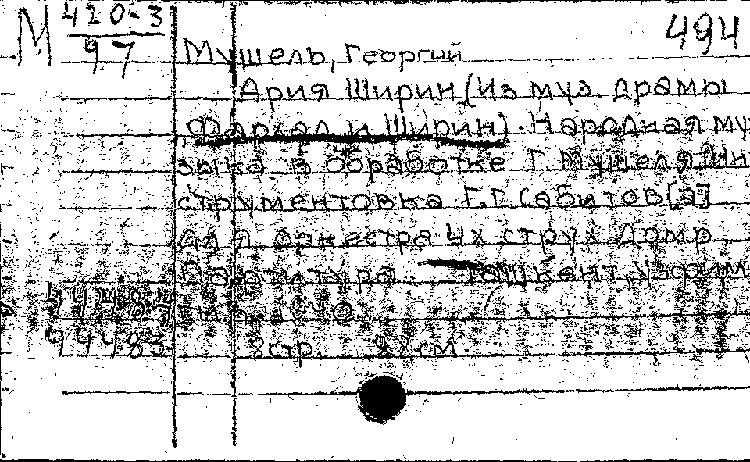 М 420-3
97
494
Мушель, Георгий
Ария Ширин (Из муз. драмы
Фархад и Ширин). Народная му
зыка в обработке Г. Мушеля. Ин
струментовка Г.Г. Сабитов[а]
для оркестра 4х струн. домр
Партитура. Ташкент, Узфим
99483
8 стр. 28 см.